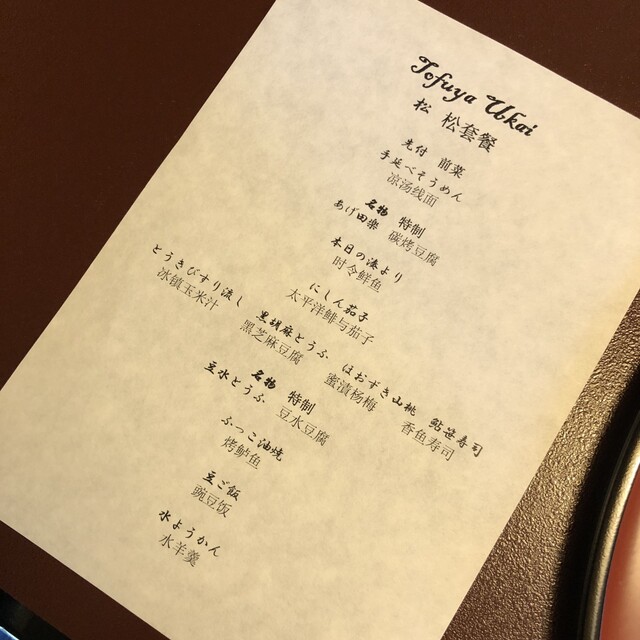 Tofuya Ukai
松 松套餐
先付 前菜
手延べそうめん
凉汤线面
名物 特制
あげ田楽 碳烤豆腐
本日の湊より
时令鲜鱼
にしん茄子
太平洋鲱与茄子
とうきびすり流し 黒胡麻とうふ ほおずき山桃 鮎笹寿司
冰镇玉米汁 黑芝麻豆腐 蜜渍杨梅 香鱼寿司
名物 特制
豆水とうふ 豆水豆腐
ふっこ油焼
烤鲈鱼
豆ご飯
豌豆饭
水ようかん
水羊羹